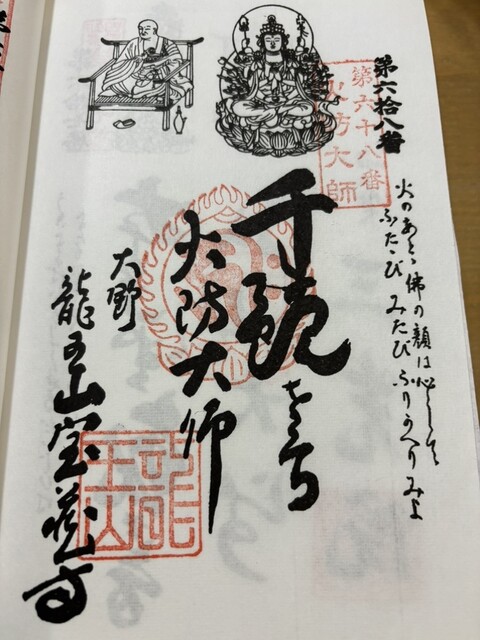 第六拾八番
第六十八番
火防大師
火のあと 佛の顔は心して
ふたゝび みたび ふりかへりみよ
千観
火防大師
大野
龍王山宝蔵寺
龍王山